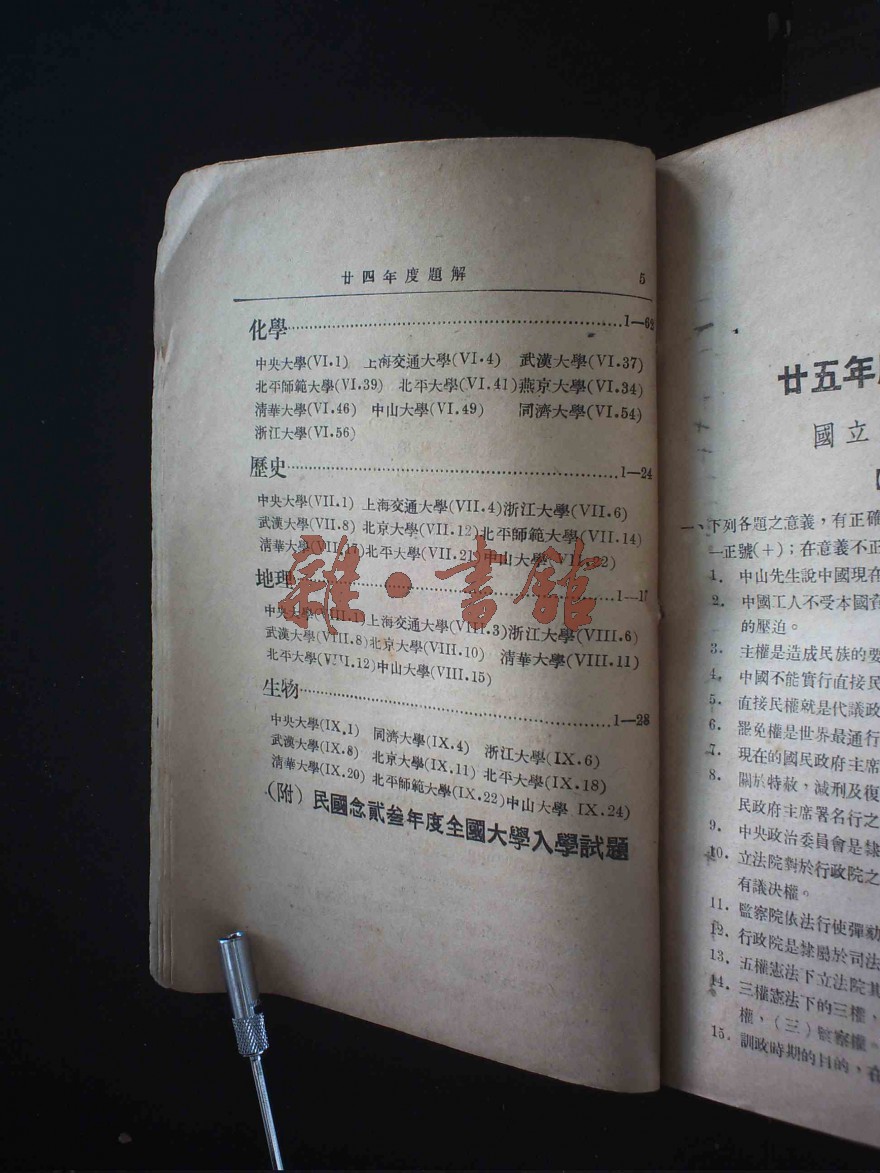 廿四年度題解 5
化學……1—62
中央大學(VI.1) 上海交通大學(VI.4) 武漢大學(VI.37)
北平師範大學(VI.39) 北平大學(VI.41)燕京大學(VI.34)
清華大學(VI.46) 中山大學(VI.49) 同濟大學(VI.54)
浙江大學(VI.56)
歷史……1—24
中央大學(VII.1) 上海交通大學(VII.4)浙江大學(VII.6)
武漢大學(VII.8) 北京大學(VII.12)北平師範大學(VII.14)
清華大學(VII.17)北平大學(VII.21)中山大學(VII.22)
雜·書館
地理……1—1
中央大學(VIII.1)上海交通大學(VIII.3)浙江大學(VIII.6)
武漢大學(VIII.8)北京大學(VIII.10) 清華大學(VIII.11)
北平大學(VIII.12)中山大學(VIII.15)
生物……1—28
中央大學(IX.1) 同濟大學(IX.4) 浙江大學(IX.6)
武漢大學(IX.8) 北京大學(IX.11) 北平大學(IX.18)
清華大學(IX.20) 北平師範大學(IX.22)中山大學 IX.24)
(附) 民國念貳叁年度全國大學入學試題
廿五年
國立
【
一、下列各題之意義，有正確
一正號(+)；在意義不正
1. 中山先生說中國現在
2. 中國工人不受本國資
的壓迫。
3. 主權是造成民族的要
4. 中國不能實行直接民
5. 直接民權就是代議政
6. 罷免權是世界最通行
7. 現在的國民政府主席
8. 關於特赦，減刑及復
民政府主席署名行之
9. 中央政治委員會是隸
10. 立法院對於行政院之
有議决權。
11. 監察院依法行使彈劾
12. 行政院是隸屬於司法
13. 五權憲法下立法院其
14. 三權憲法下的三權，
權，(三)監察權。
15. 訓政時期的目的，在